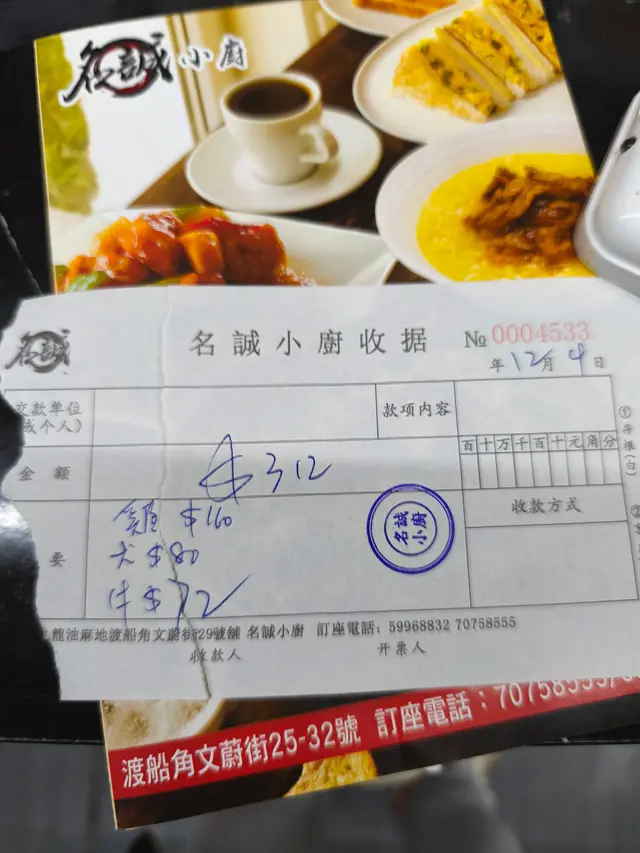 名誠小廚
名誠
名誠小廚收据 № 0004533
年12月4日
交款单位
(或个人)
款项内容
金额
$312
百十万千百十元角分
雞 $160
大 $80
牛 $72
要
名誠
小廚
收款方式
①存根(白)
②
九龍油麻地渡船角文蔚街29號舖 名誠小廚 訂座電話：59968832 70758555
收款人 开票人
渡船角文蔚街25-32號 訂座電話：70758555/